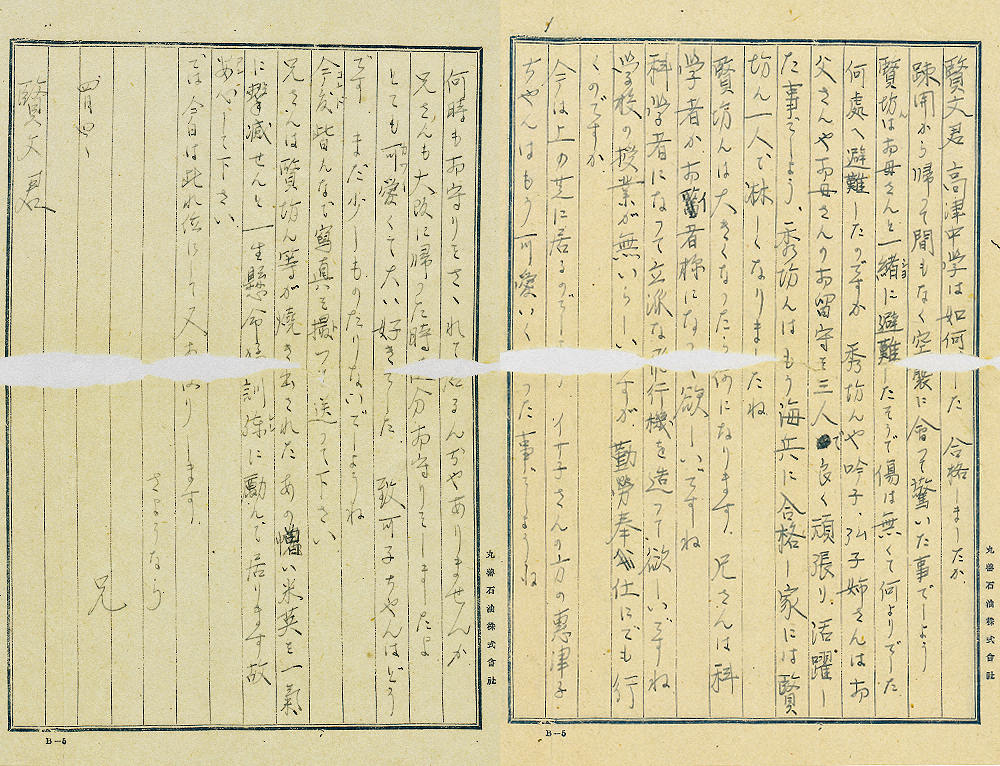 賢文君 高津中学は如何 した 合格 ましたか、
疎開から帰って間もなく空襲に會って驚いた事でしょう
賢坊はお母さんと一緒に避難したそうで傷は無くて何よりでした
何處へ避難したのですか 秀坊んや吟子、弘子姉さんはお
父さんやお母さんのお留守を三人で良く頑張り、活躍し
た事でしょう、秀坊んはもう海兵に合格し家には賢
坊ん一人で淋しくなりましたね
賢坊んは大きくなったら何になります、兄さんは科
学者かお医者様になって欲しいですね
科学者になって立派な飛行機を造って欲しいですね
学校の授業が無いらしいですが、勤労奉仕にでも行
くのですか
今は上の芝に居るのでしょう イサ子さんの上の恵津子
ちゃんはもう可愛いく った事でしょうね
何時もお守りをさゝれて居るんぢゃありませんか
兄さんも大阪に帰った時は 分お守りをしましたよ
とても可愛くて大い好きでした、 致可子ちゃんはどう
です、まだ少しものたりないでしょうね
今度皆んなで寫真を撮って送って下さい
兄さんは賢坊ん等が焼き出されたあの憎い米英を一氣
に撃滅せんと一生懸命 訓練に勵んで居ります故
安心して下さい
では今日は此れ位にして又お りします、
さようなら
四月四日
兄
賢文君
丸善石油株式會社
丸善石油株式會社
B-5
B-5